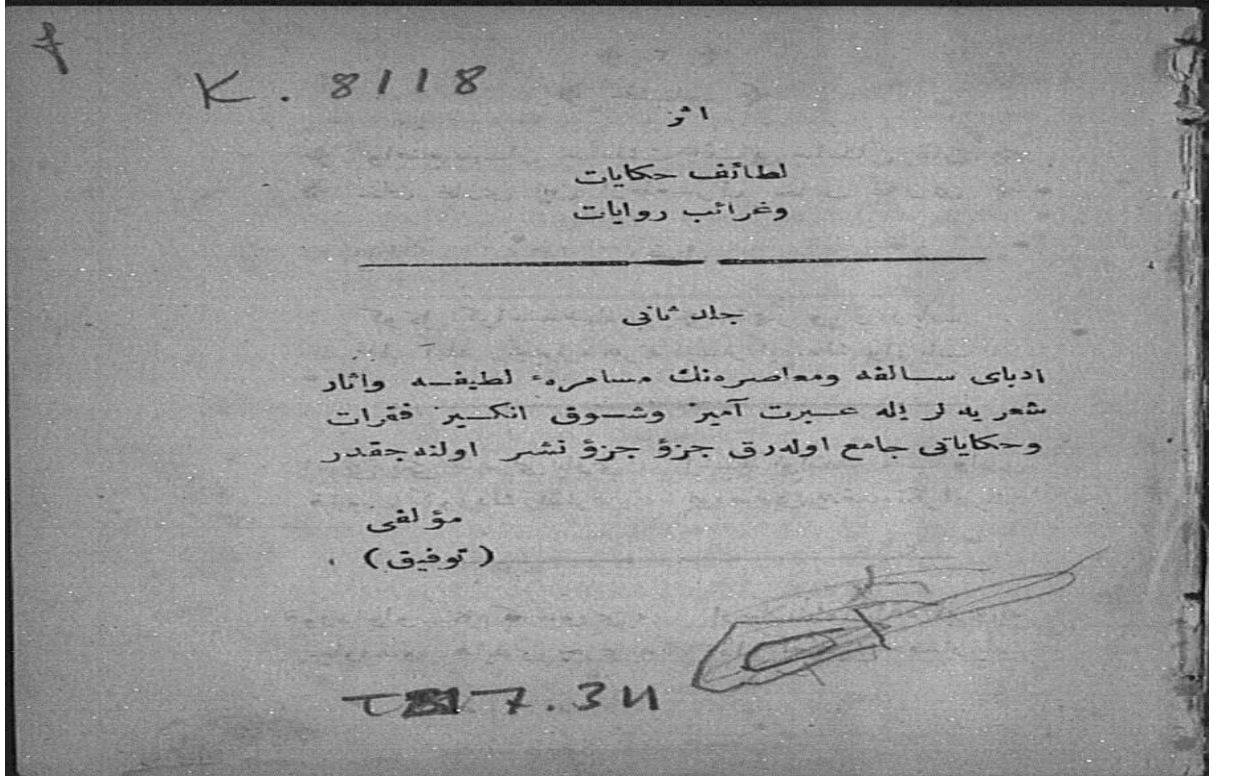 K. 8118
اثر
لطائف حكایات
وغرائب روایات
جلد ثانی
ادبای سالفه ومعاصره‌نك مسامرهٔ لطیفه واثار
شعریه لر یله عبرت آمیز وشوق انكیز فقرات
وحكایاتی جامع اوله‌رق جزؤ جزؤ نشر اولنه‌جقدر
مؤلفی
(توفیق)
7.34